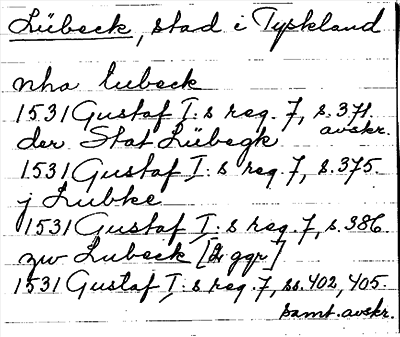 Lübeck, stad i Tyskland
nha lubeck
1531 Gustaf I:s reg. 7, s. 371.
avskr.
der Stat Lübegk
1531 Gustaf I:s reg. 7, s. 375.
j Lubke
1531 Gustaf I:s reg. 7, s. 386.
zw Lubeck [2 ggr]
1531 Gustaf I:s reg. 7, ss. 402, 405.
samt. avskr.